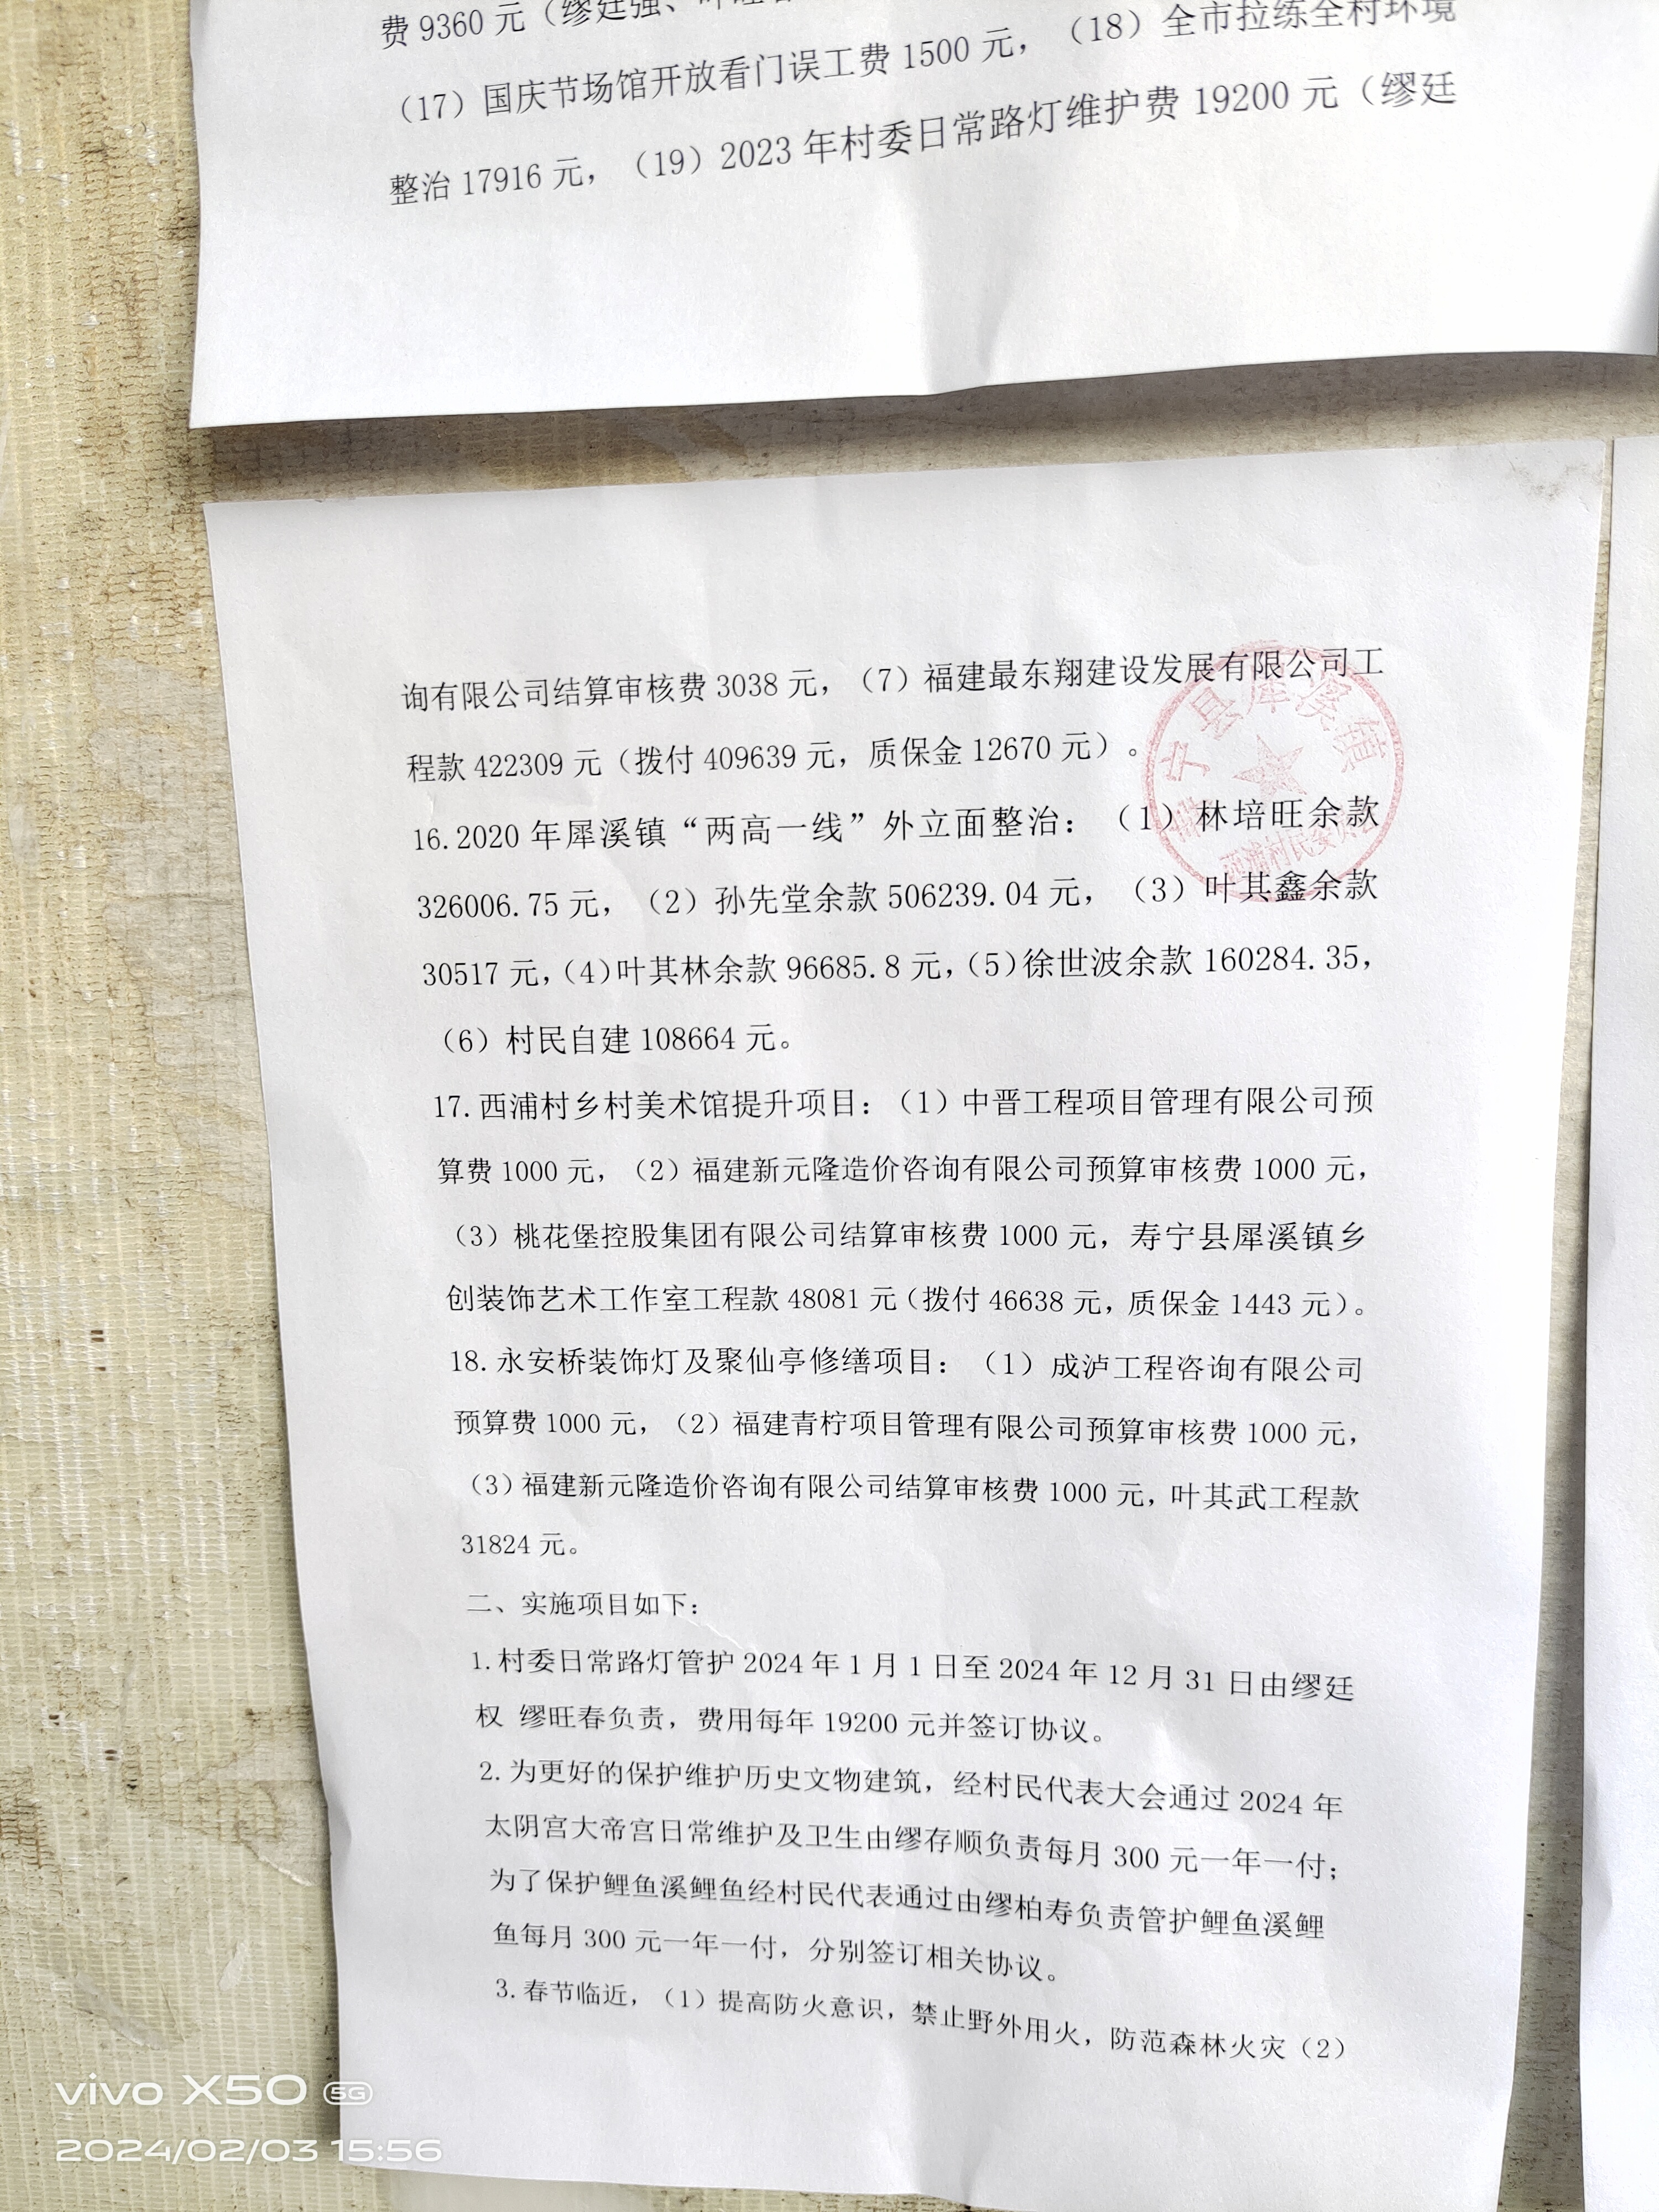 费 9360 元（缪廷强、
（17）国庆节场馆开放看门误工费 1500 元，（18）全市拉练全村环境
整治 17916 元，（19）2023 年村委日常路灯维护费 19200 元（缪廷
寿宁县犀溪镇
西浦村民委员会
询有限公司结算审核费 3038 元，（7）福建最东翔建设发展有限公司工
程款 422309 元（拨付 409639 元，质保金 12670 元）。
16.2020 年犀溪镇“两高一线”外立面整治：（1）林培旺余款
326006.75 元，（2）孙先堂余款 506239.04 元，（3）叶其鑫余款
30517 元，（4）叶其林余款 96685.8 元，（5）徐世波余款 160284.35，
（6）村民自建 108664 元。
17. 西浦村乡村美术馆提升项目：（1）中晋工程项目管理有限公司预
算费 1000 元，（2）福建新元隆造价咨询有限公司预算审核费 1000 元，
（3）桃花堡控股集团有限公司结算审核费 1000 元，寿宁县犀溪镇乡
创装饰艺术工作室工程款 48081 元（拨付 46638 元，质保金 1443 元）。
18. 永安桥装饰灯及聚仙亭修缮项目：（1）成泸工程咨询有限公司
预算费 1000 元，（2）福建青柠项目管理有限公司预算审核费 1000 元，
（3）福建新元隆造价咨询有限公司结算审核费 1000 元，叶其武工程款
31824 元。
二、实施项目如下：
1. 村委日常路灯管护 2024 年 1 月 1 日至 2024 年 12 月 31 日由缪廷
权 缪旺春负责，费用每年 19200 元并签订协议。
2. 为更好的保护维护历史文物建筑，经村民代表大会通过 2024 年
太阴宫大帝宫日常维护及卫生由缪存顺负责每月 300 元一年一付；
为了保护鲤鱼溪鲤鱼经村民代表通过由缪柏寿负责管护鲤鱼溪鲤
鱼每月 300 元一年一付，分别签订相关协议。
3. 春节临近，（1）提高防火意识，禁止野外用火，防范森林火灾（2）
vivo X50 5G
2024/02/03 15:56